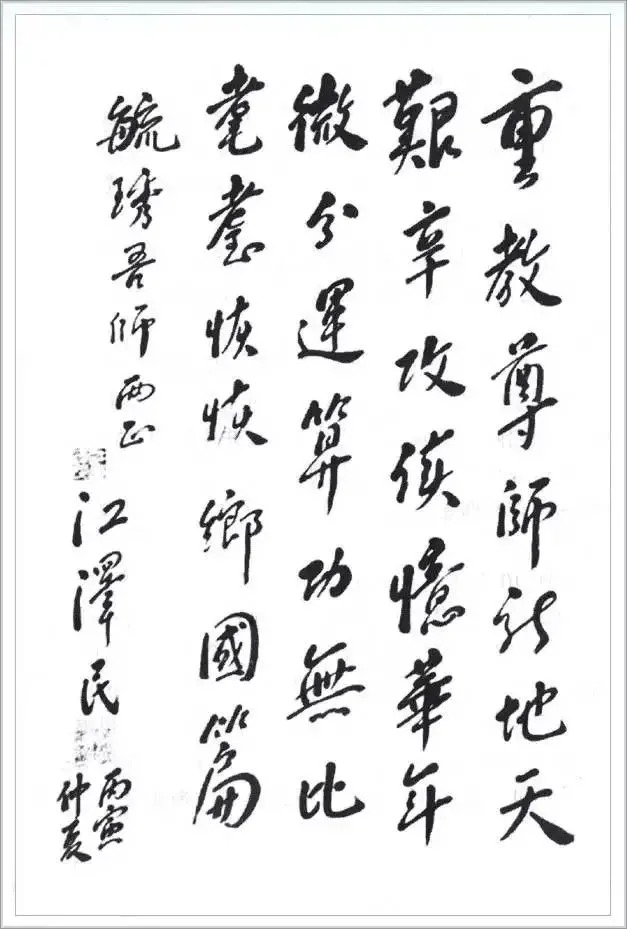 重教尊師新地天
艱辛攻读憶華年
微分運算功無比
耄耋恢恢鄉國篇
毓琇吾师两正
江澤民
丙寅
仲夏